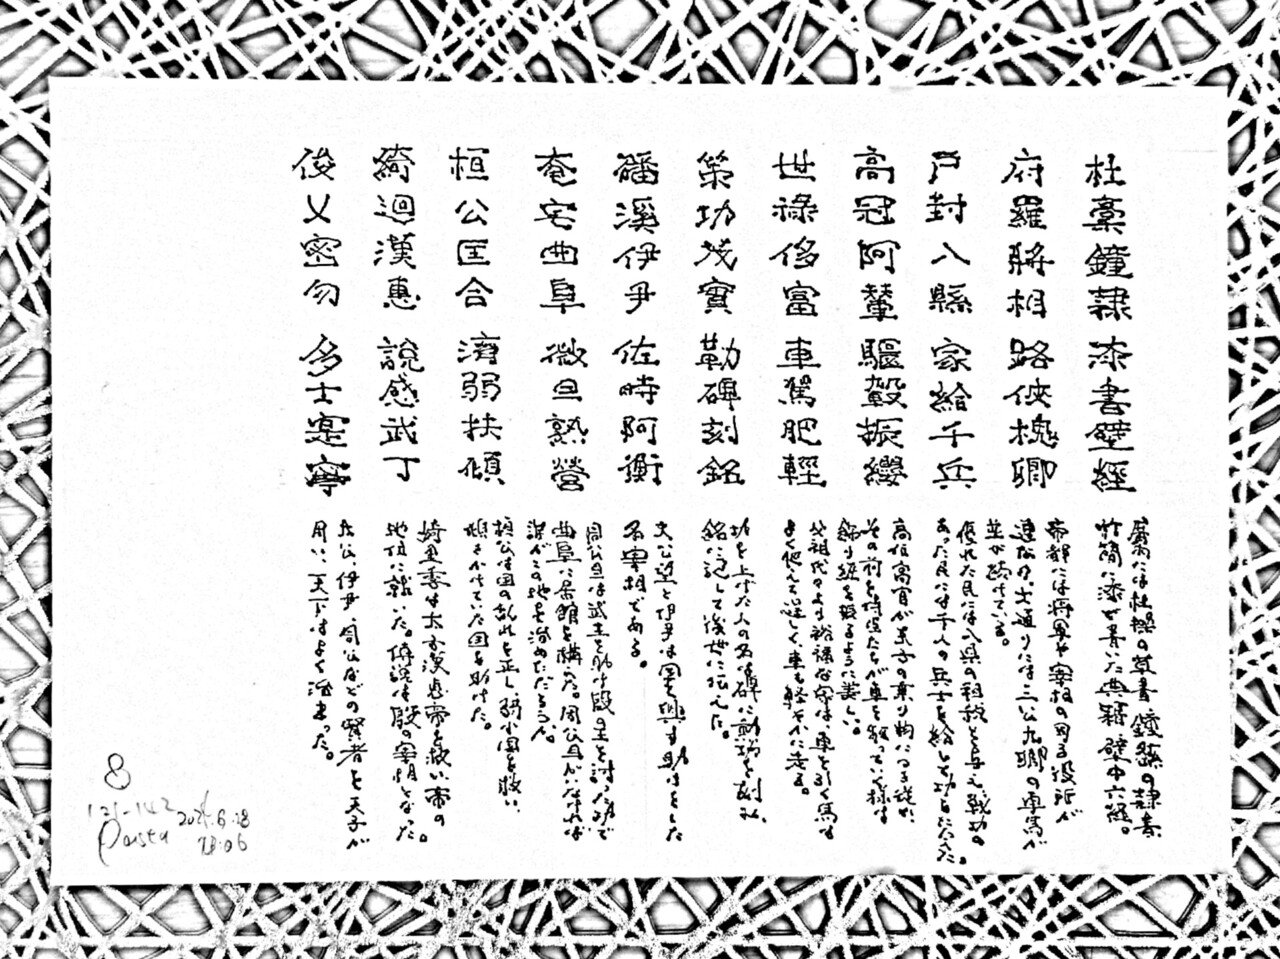 杜稾鐘隷 漆書壁經
府羅將相 路俠槐卿
戸封八縣 家給千兵
高冠陪輦 驅轂振纓
世祿侈富 車駕肥輕
策功茂實 勒碑刻銘
磻溪伊尹 佐時阿衡
奄宅曲阜 微旦孰營
桓公匡合 濟弱扶傾
綺迴漢惠 說感武丁
俊乂密勿 多士寔寧
竹簡に漆で書いた典籍 壁中六経。
帝都には将軍や宰相の司る役所が
連なり 大通りには三公九卿の車馬が
並び続けている。
優れた臣には八県の租税を与え 戦功の
あった臣には千人の兵士を給して功にこたえた。
高位高官が天子の乗り物につき従い
父祖代々より裕福な家は車を引く馬も
よく肥えて逞しく、車も軽やかに走る。
功を上げた人の名は碑に勲功を刻み、
銘に記して後世に伝えた。
太公望と伊尹は国を興す助けをした
名宰相である。
周公旦は武王を助け殷王を討った功で
曲阜に居館を構えた。周公旦がいなければ
誰がこの地を治めただろうか。
桓公は国の乱れを正し、弱小国を救い、
傾きかけていた国を助けた。
綺里季は太子漢恵帝を救い帝の
地位に就いた。傅説は殷の宰相となった。
太公、伊尹、周公などの賢者を天子が
用い、天下はよく治まった。
8
121-142